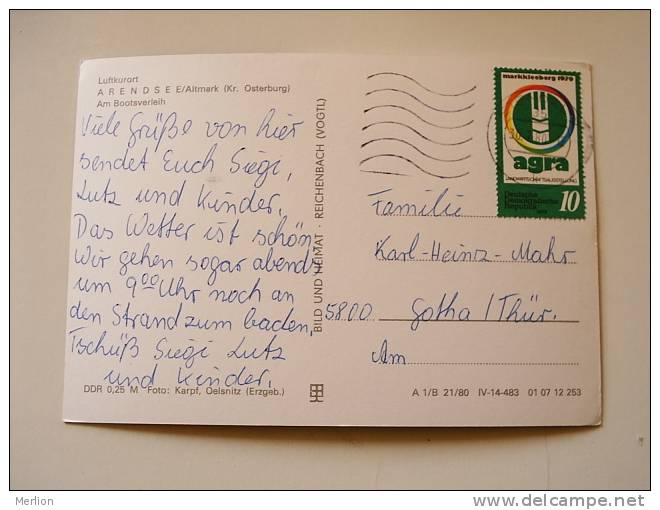 Luftkurort
ARENDSEE/Altmark (Kr. Osterburg)
Am Bootsverleih
Viele Grüße von hier
sendet Euch Siegi,
Lutz und Kinder.
Das Wetter ist schön
Wir gehen sogar abends
um 9 00 Uhr noch an
den Strand zum baden.
Tschüß Siegi Lutz
und Kinder.
DDR 0,25 M Foto: Karpf, Oelsnitz (Erzgeb.)
BILD UND HEIMAT · REICHENBACH (VOGTL)
markkleeberg 1979
agra
LANDWIRTSCHAFTSAUSSTELLUNG
Deutsche
Demokratische
Republik
10
Familie
Karl-Heinz-Mahr
5800 Gotha / Thür.
Am
A 1/B 21/80 IV-14-483 01 07 12 253
Merlion
http://www.delcampe.net